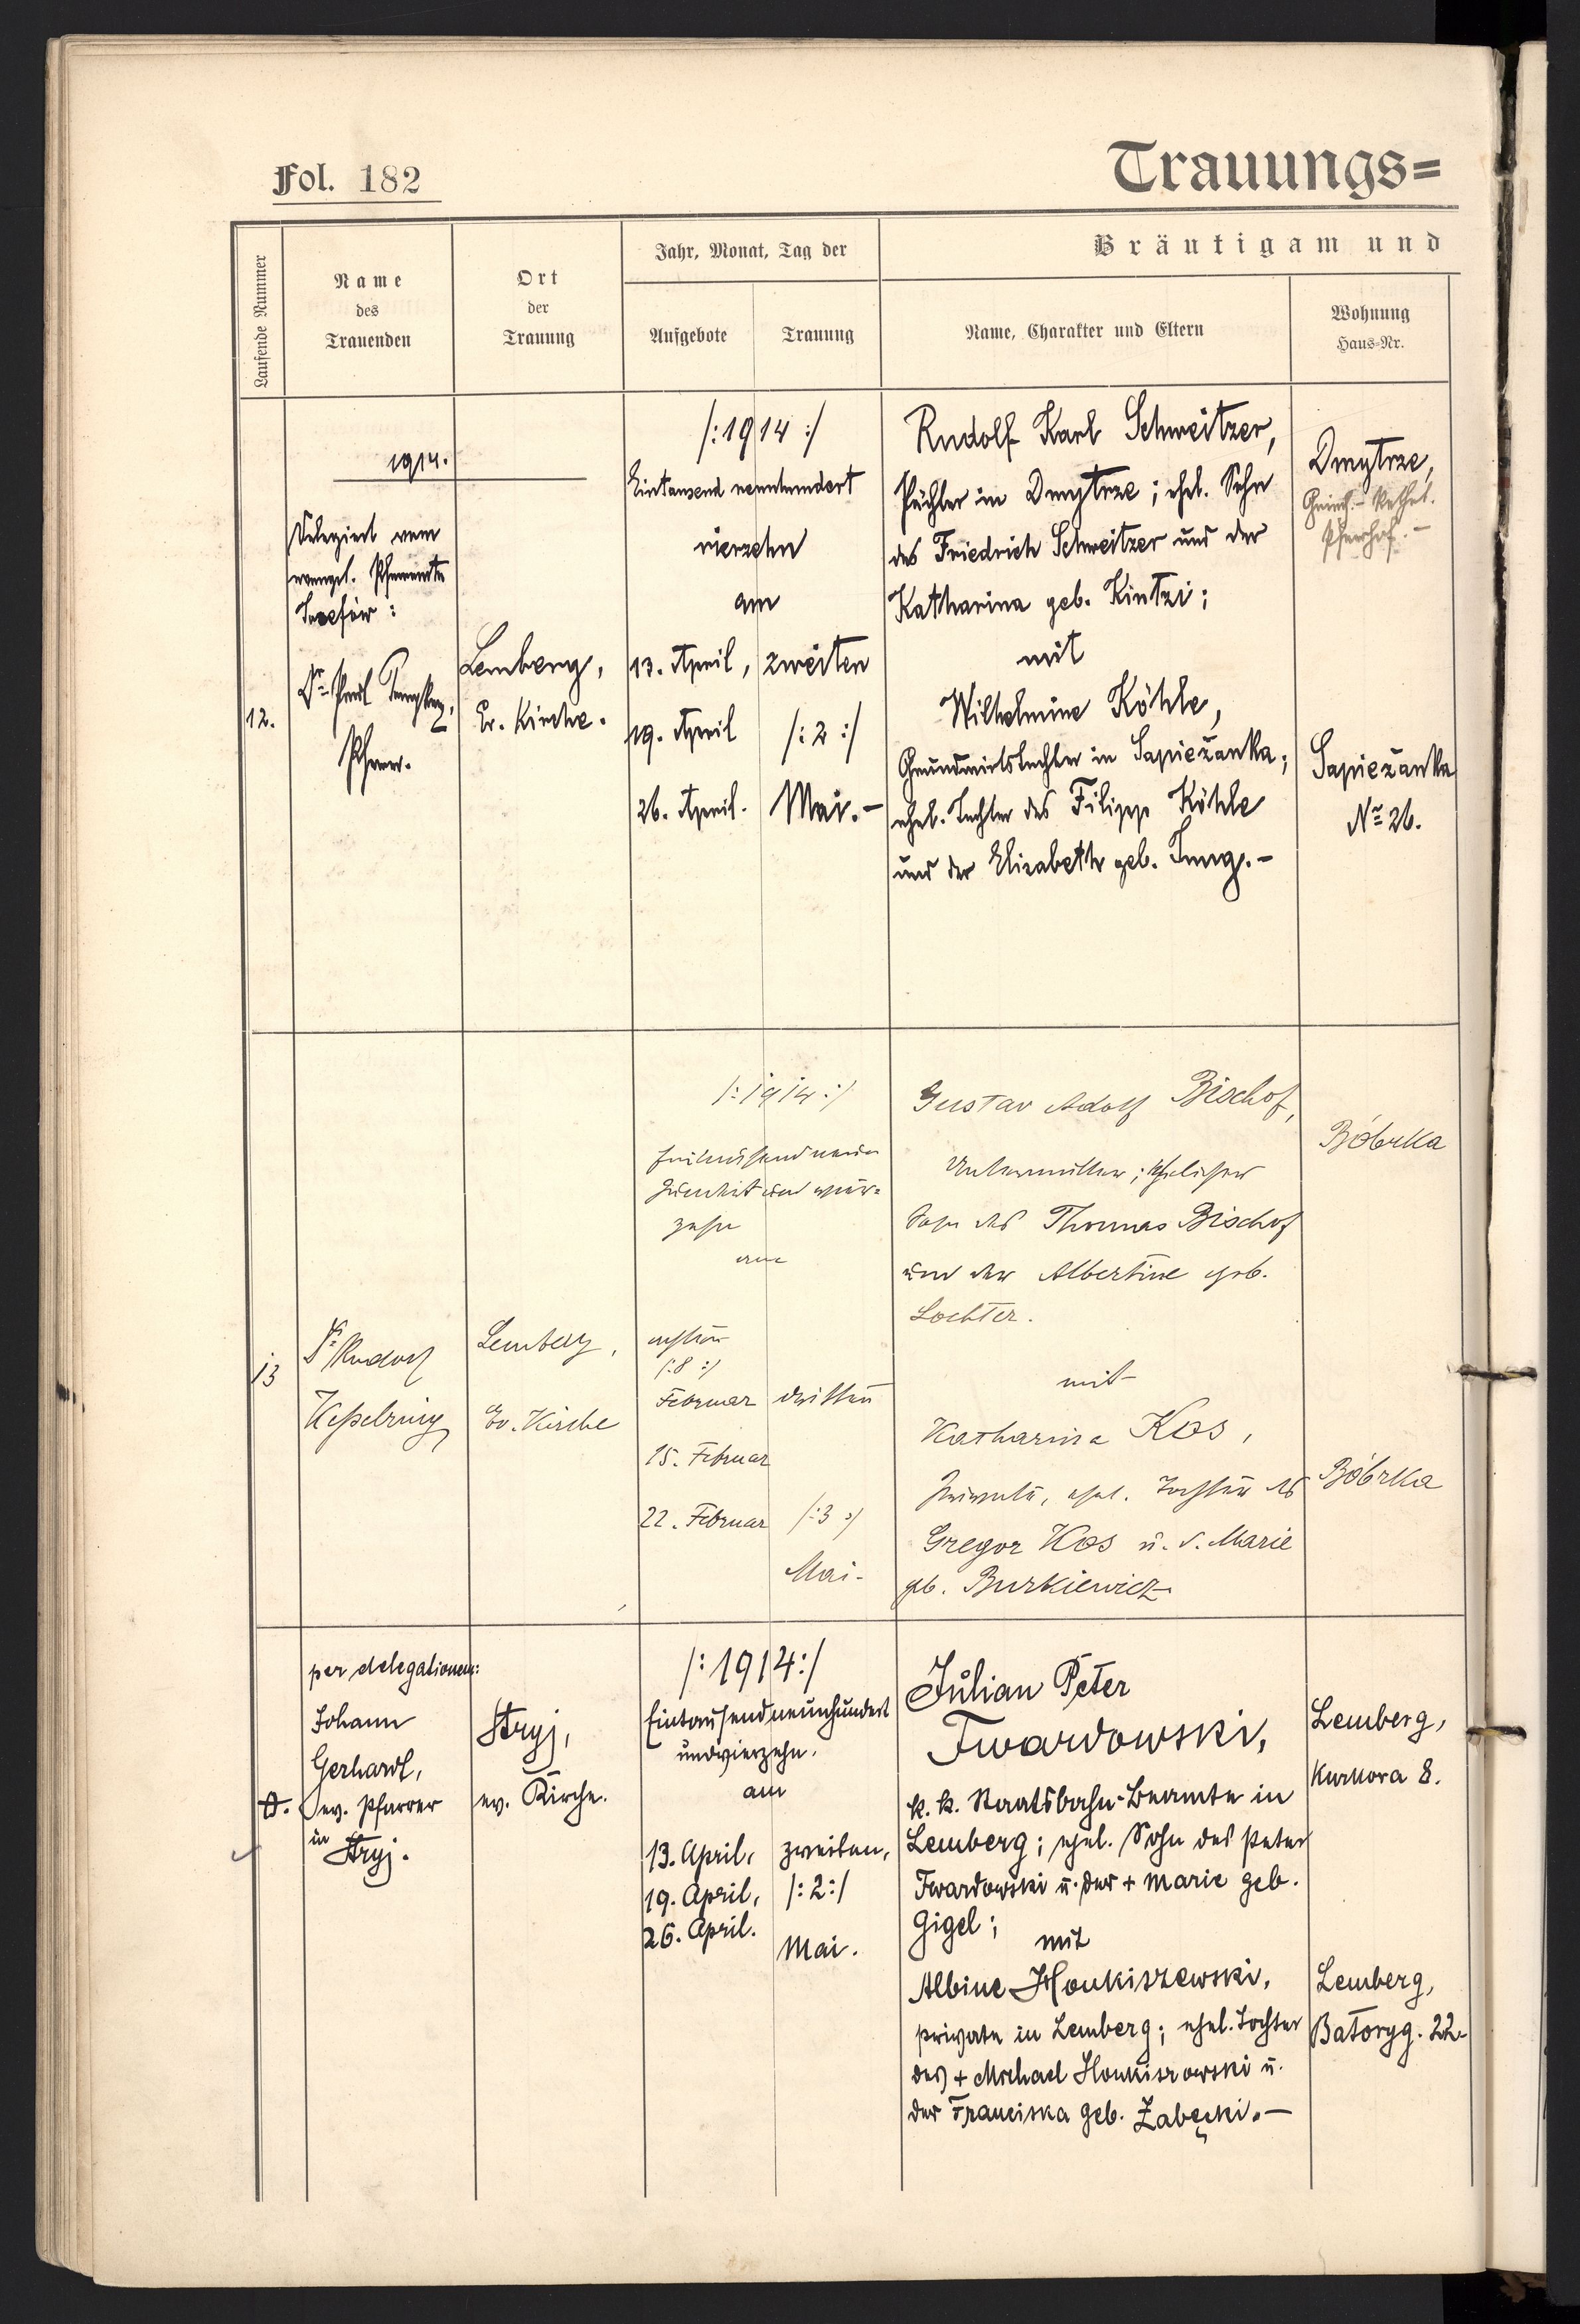 Fol. 182
Trauungs=
Laufende Nummer
Name
des
Trauenden
Ort
der
Trauung
Jahr, Monat, Tag der
Aufgebote
Trauung
Bräutigam und
Name, Charakter und Eltern
Wohnung
Haus-Nr.
12.
1914.
Delegiert vom
evangel. Pfarramte
Josefów:
Dr. Paul
Pfarrer.
Lemberg,
Ev. Kirche.
/:1914:/
Eintausend neunhundert
vierzehn
am
13. April,
19. April
26. April.
zweiten
/:2:/
Mai.-
Rudolf Karl Schweitzer,
Pächter in Dmytrze; ehel. Sohn
des Friedrich Schweitzer und der
Katharina geb. Kintzi;
mit
Wilhelmine Köhle,
Grundwirtstochter in Sapieżanka;
ehel. Tochter des Filipp Köhle
und der Elisabeth geb. Jung.-
Dmytrze,
Sapieżanka
No 26.
13
Dr. Rudolf
Keßelring
Lemberg,
Ev. Kirche
/:1914:/
Eintausend neun-
hundert und vier=
zehn
am
achten
/:8:/
Februar
15. Februar
22. Februar
dritten
/:3:/
Mai-
Gustav Adolf Bischof,
Untermüller; ehelicher
Sohn des Thomas Bischof
und der Albertine geb.
Lochter.
mit
Katharina Kos,
Private, ehel. Tochter des
Gregor Kos u. d. Marie
geb. Burkiewicz
Bóbrka
Bóbrka
ø.
per delegationem:
Johann
Gerhardt,
ev. Pfarrer
in Stryj.
Stryj,
ev. Kirche.
/:1914:/
Eintausendneunhundert
undvierzehn.
am
13. April,
19. April,
26. April.
zweiten,
/:2:/
Mai.
Julian Peter
Twardowski,
k. k. Staatsbahn-Beamte in
Lemberg; ehel. Sohn des Peter
Twardowski u. der + Marie geb.
Gigel;
mit
Albine Honkiszewski,
private in Lemberg; ehel. Tochter
des + Michael Honkiszowski u.
der Franciska geb. Zabęcki.-
Lemberg,
Kurkova 8.
Lemberg,
Batoryg. 22.